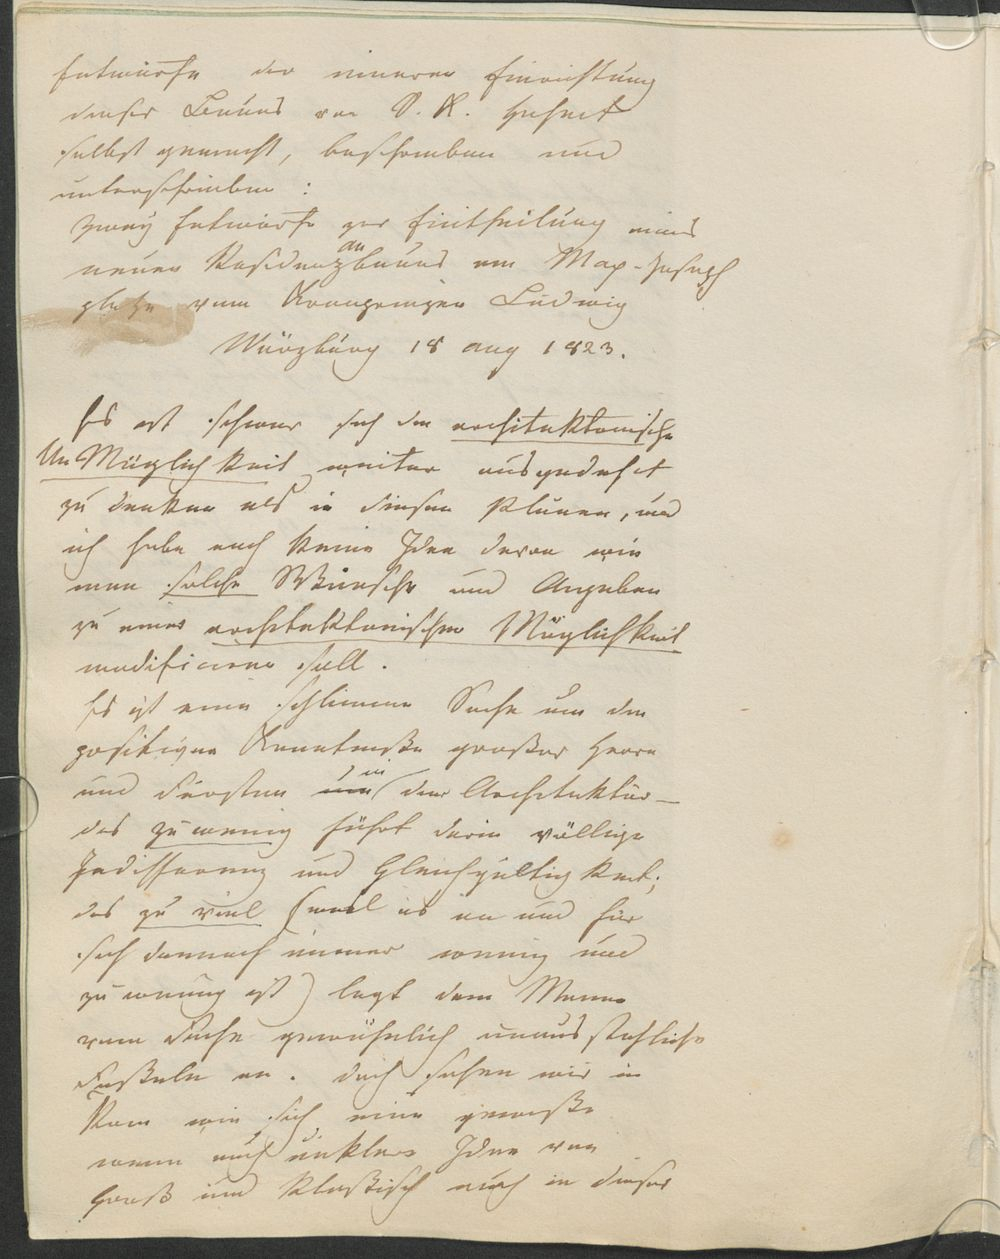 Entwürfe der inneren Einrichtung
dieses Baues von S. K. Hoheit
selbst gemacht, beschrieben und
unterschrieben :
Zwey Entwürfe zur Eintheilung eines
neuen Residenzbaues am Max-Joseph
platze vom Kronprinzen Ludwig
Würzburg 18 Aug 1823.
Es ist schwer sich die architektonische
UnMöglichkeit weiter ausgedehnt
zu denken als in diesen Plänen, und
ich habe auch keine Idee davon wie
man solche Wünsche und Angaben
zu einer architektonischen Möglichkeit
modificieren soll.
Es ist eine schlimme Sache um die
positiven Kenntniße großer Herrn
und Fürsten in der Architektur –
das zu wenig führt darin völlige
Indifferenz und Gleichgültigkeit;
das zu viel (weil es an und für
sich dennoch immer wenig und
zu wenig ist) legt dem Manne
vom Fache gewöhnlich unausstehliche
Feßeln an. Doch sehen wir in
Rom wie sich eine gewiße
wenn auch dunkle Idee von
Groß und Klaßisch auch in dieser